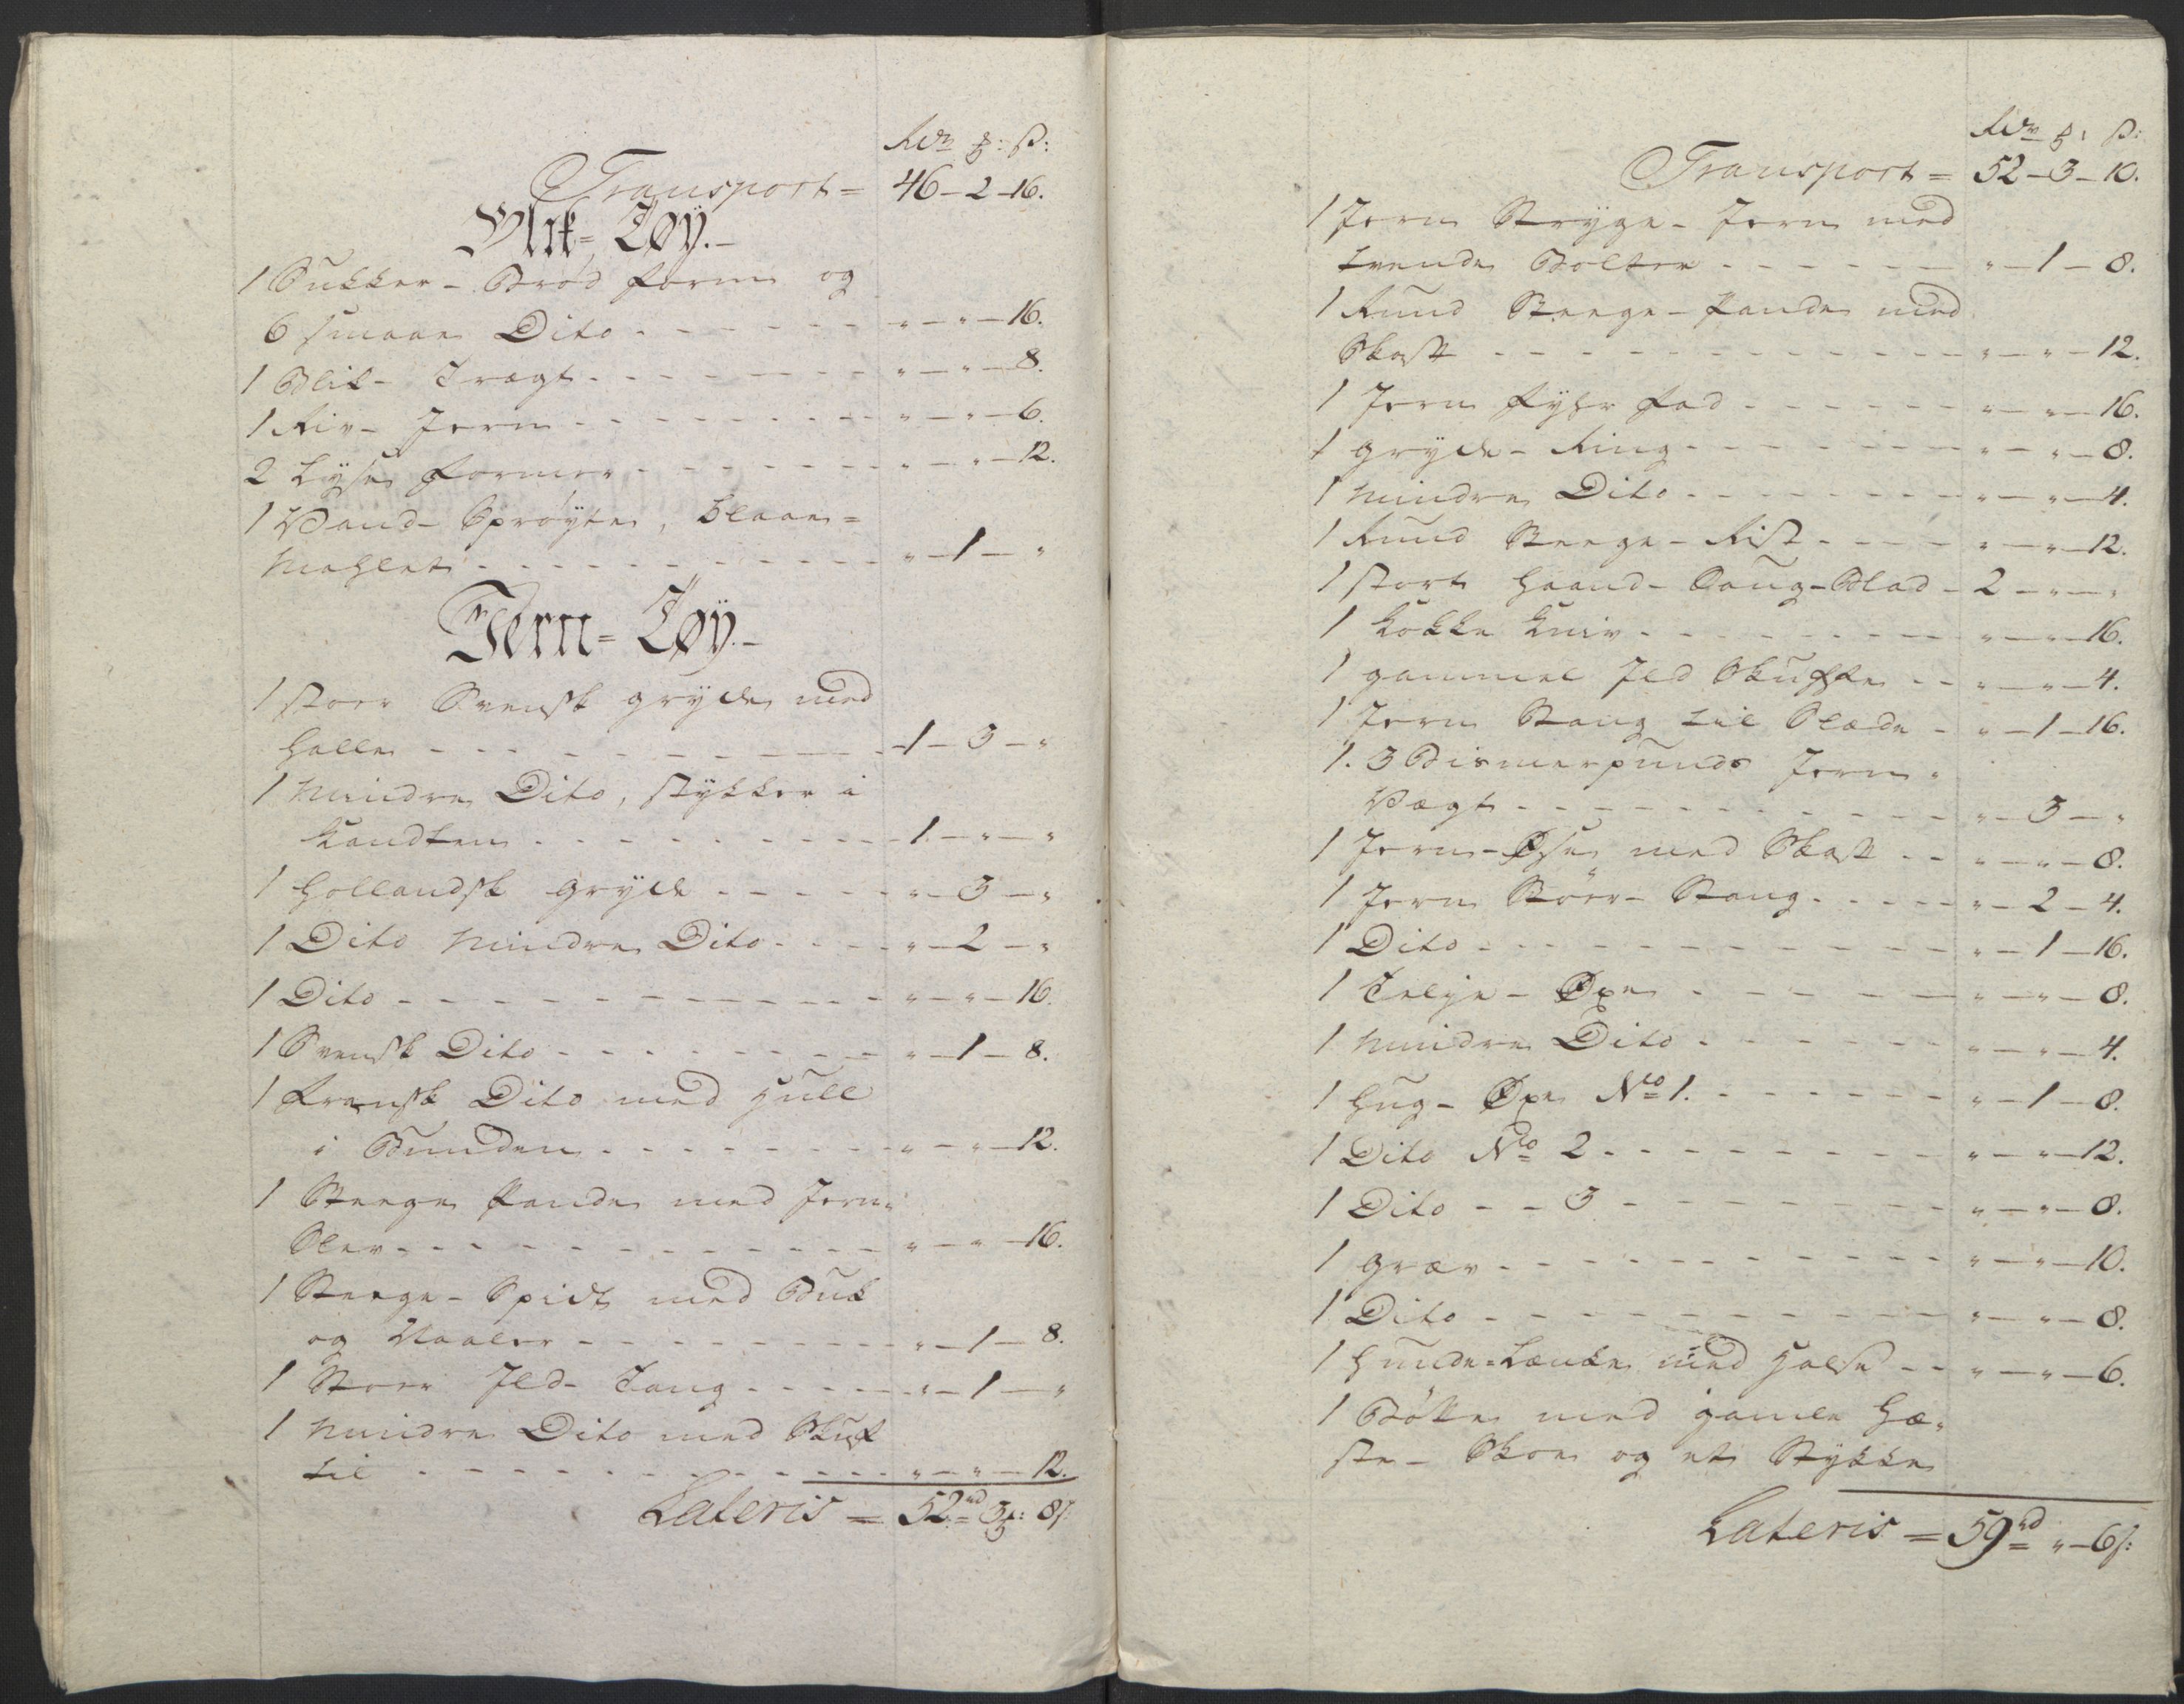 Rdr ꝝ: ß:
Transport = 46 – 2 – 16.
Blik- Tøÿ. –
1 Sukker- Brød form og
6 smaae Dito - - - - - - " – " – 16.
1 Blik- Tragt - - - - - - " – " – 8.
1 Riv- Jern - - - - - - " – " – 6.
2 Lyse former - - - - - - " – " – 12.
1 Vand- Sprøyte, blaae =
mahlet - - - - - - " – 1 – "
Jern- Tøÿ. –
1 stoer Svensk gryde med
Halle - - - - - - 1 – 3 – "
1 mindre Dito, stykker i
Kandten - - - - - - 1 – " – "
1 Hollandsk gryde - - - - - - " – 3 – "
1 Dito mindre Dito - - - - " – 2 – "
1 Dito - - - - - - " – " – 16.
1 Svensk Dito - - - - - - " – 1 – 8.
1 fransk Dito med Hull
i Bunden - - - - - - " – " – 12.
1 Steege Pande med Jern-
Slev - - - - - - " – " – 16.
1 Steege- Spidt med Buk
og Naaler - - - - - - " – 1 – 8.
1 Stoer Ild- Tang - - - - - " – 1 – "
1 mindre Dito med Skuf
til - - - - - - " – " – 12.
Lateris = 52rd 3ꝝ: 8ß
Rdr ꝝ: ß:
Transport = 52 – 3 – 10.
1 Jern Stryge- Jern med
tvende Bolter - - - - - - " – 1 – 8.
1 Rund Steege- Pande med
Skaft - - - - - - " – " – 12.
1 Jern fyhr fad - - - - - - " – " – 16.
1 gryde- Ring - - - - - - " – " – 8.
1 mindre Dito - - - - - - " – " – 4.
1 Rund Steege- Rist - - - - " – " – 12.
1 stort Haand- Saug- Blad - 2 – " – "
1 Kokke Kniv - - - - - - " – " – 16.
1 gammel Ild Skuffe - - " – " – 4.
1 Jern Stang til Slæde - " – 1 – 16.
1. 3 Bismerpunds Jern-
Vægt - - - - - - " – 3 – "
1 Jern- Øse med Skaft - - " – " – 8.
1 Jern Støer- Stang - - - - - " – 2 – 4.
1 Dito - - - - - - " – 1 – 16.
1 Telje- Øxe - - - - - - " – " – 8.
1 mindre Dito - - - - - - " – " – 4.
1 Hug- Øxe No 1. - - - - - - " – 1 – 8.
1 Dito No 2 - - - - - - " – " – 12.
1 Dito - - 3 - - - - - - " – " – 8.
1 græv - - - - - - " – " – 10.
1 Dito - - - - - - " – " – 8.
1 Hunde- Lænke med Halse - - " – " – 6.
1 Bøtte med gamle Hæ-
ste- Skoe og et Stykke
Lateris = 59rd " – 6ß: